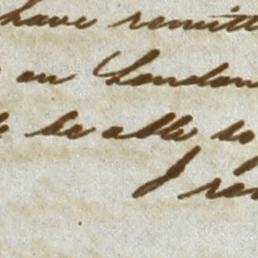 have remitt
on London
be able to
I re